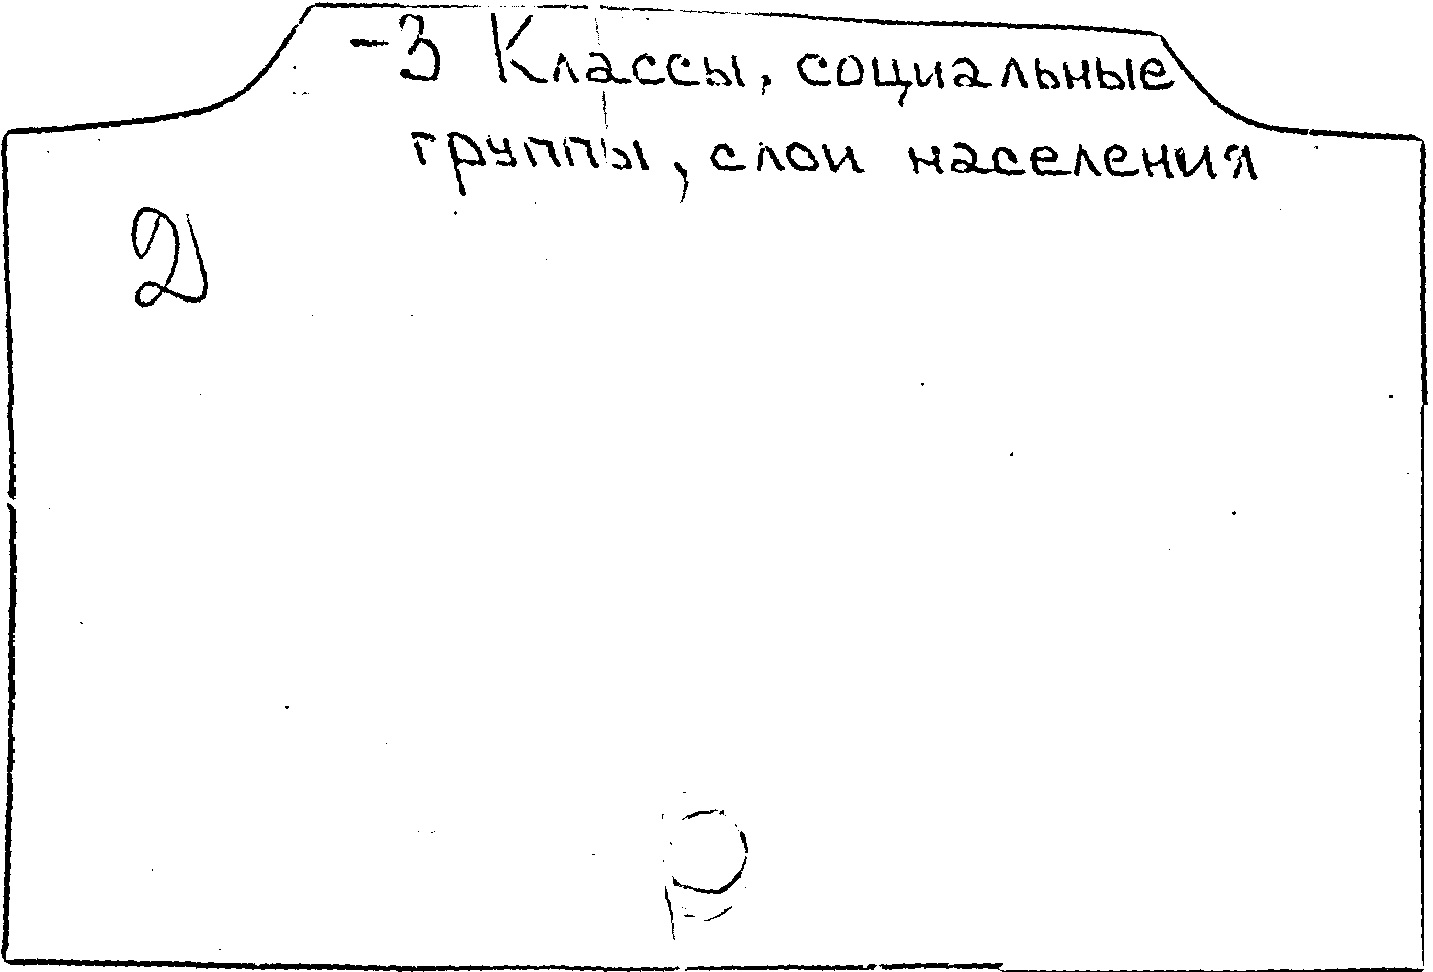 -3 Классы, социальные
группы, слои населения
2)